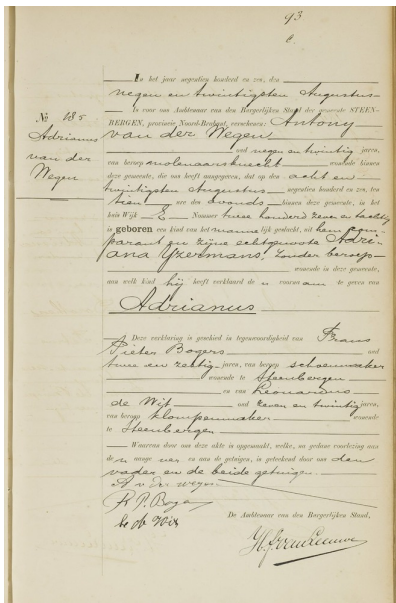 93
No 185
Adrianus
van der
Wegen
In het jaar negentien honderd en zes, den
negen en twintigsten Augustus
is voor ons Ambtenaar van den Burgerlijken Stand der gemeente STEEN-
BERGEN, provincie Noord-Brabant, verschenen: Antony
van der Wegen
oud negen en twintig jaren,
van beroep molenaarsknecht wonende binnen
deze gemeente, die ons heeft aangegeven, dat op den acht en
twintigsten Augustus negentien honderd en zes, ten
tien ure des avonds binnen deze gemeente, in het
huis Wijk E Nommer twee honderd zeven en tachtig
is geboren een kind van het mannelijk geslacht, uit hem com-
parant en zijne echtgenoote Adri-
ana Yzermans, zonder beroep
wonende in deze gemeente,
aan welk kind hij heeft verklaard de voornaam te geven van
Adrianus
Deze verklaring is geschied in tegenwoordigheid van Frans
Pieter Bogers oud
twee en zestig jaren, van beroep schoenmaker
wonende te Steenbergen
en van Leonardus
de Wit oud zeven en twintig jaren,
van beroep klompenmaker wonende
te Steenbergen
Waarvan door ons deze akte is opgemaakt, welke, na gedane voorlezing aan
de aangever en aan de getuigen, is geteekend door ons den
vader en de beide getuigen
A v der wegen
De Ambtenaar van den Burgerlijken Stand,